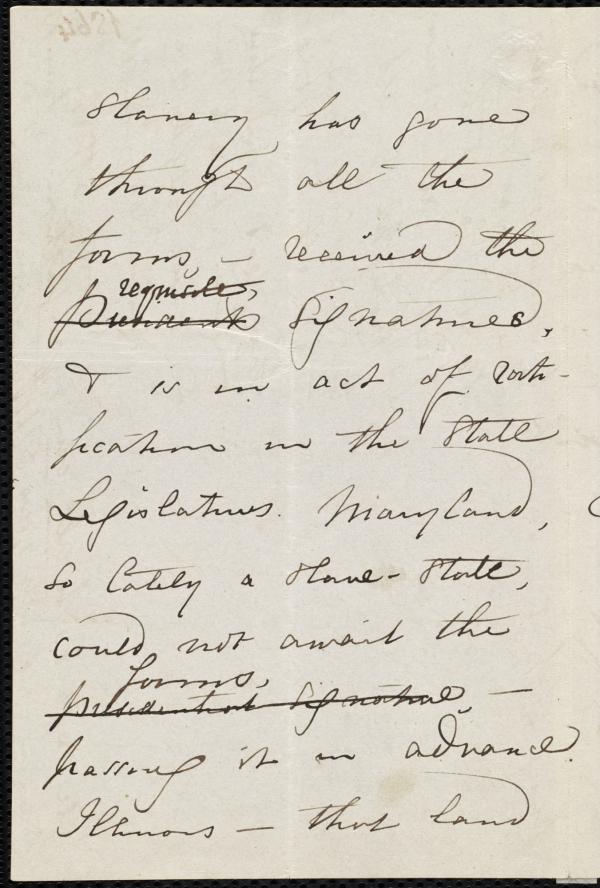 Slavery has gone
through all the
forms, – received the
requisite,
President's Signatures,
& is in act of rati-
fication in the State
Legislatures. Maryland,
so lately a slave-state,
could not await the
forms,
presidential signature, –
passing it in advance.
Illinois – that land